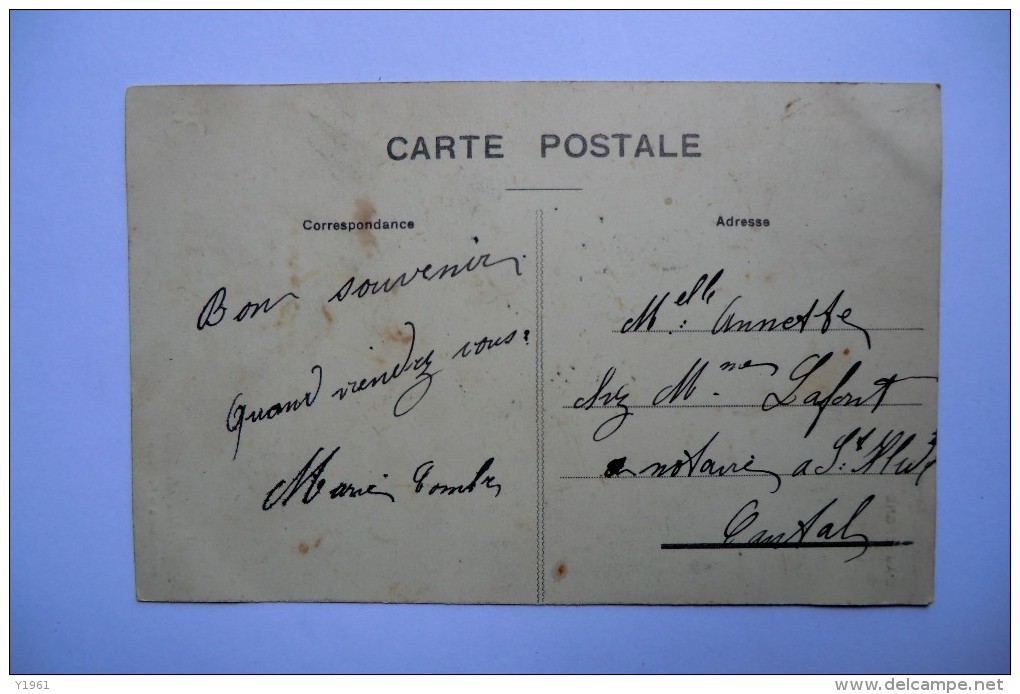 CARTE POSTALE
Correspondance
Adresse
Bon souvenir.
Quand viendrez vous?
Marie Combe
M.elle Annette
chez M.me Lafont
notaire a St.
Cantal
Y1961
www.delcampe.net